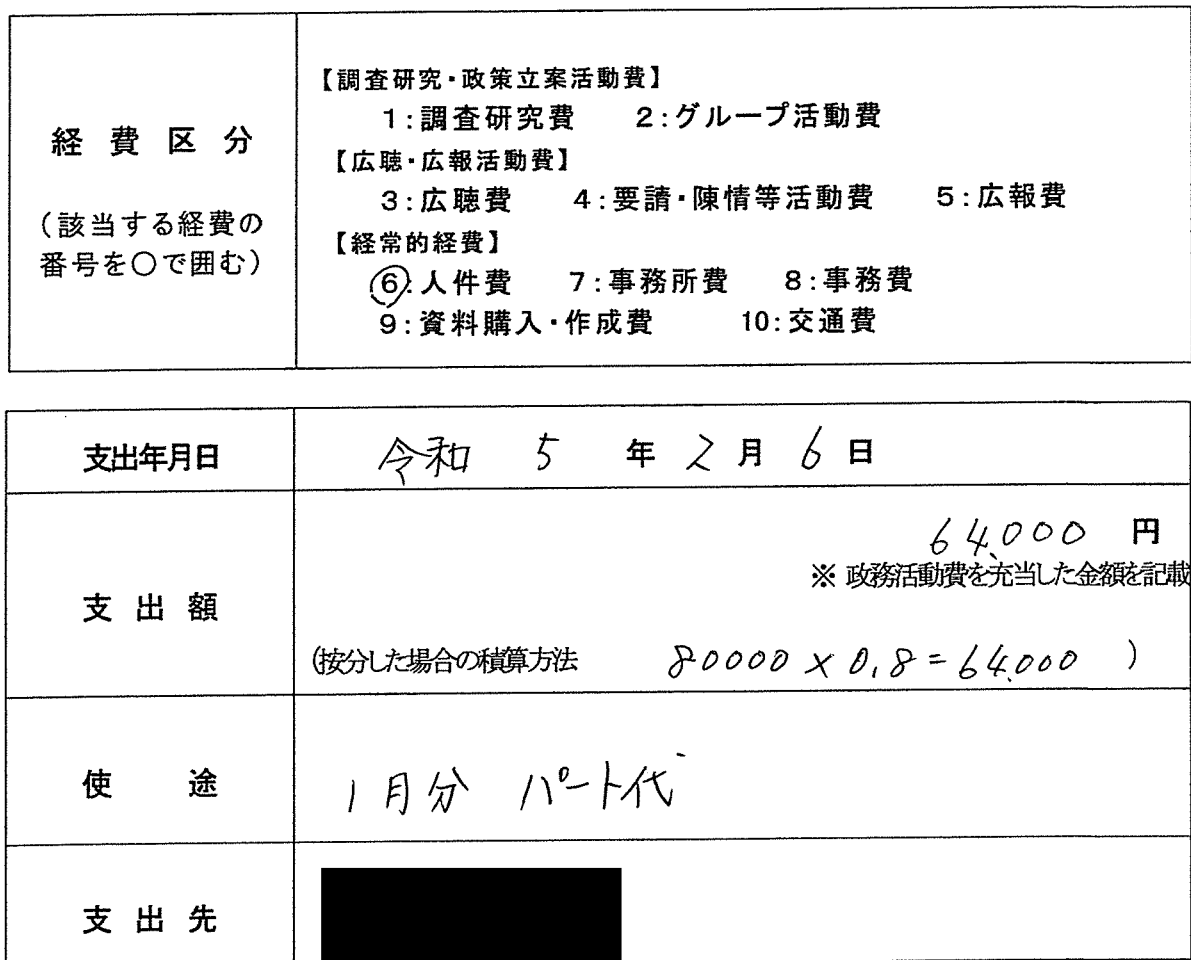 経費区分
(該当する経費の
番号を○で囲む)
【調査研究・政策立案活動費】
1:調査研究費 2:グループ活動費
【広聴・広報活動費】
3:広聴費 4:要請・陳情等活動費 5:広報費
【経常的経費】
6:人件費 7:事務所費 8:事務費
9:資料購入・作成費 10:交通費
支出年月日 令和 5 年 2 月 6 日
支出額
64,000 円
※ 政務活動費を充当した金額を記載
(按分した場合の積算方法 80000 × 0.8 = 64,000 )
使途 1月分 パート代
支出先